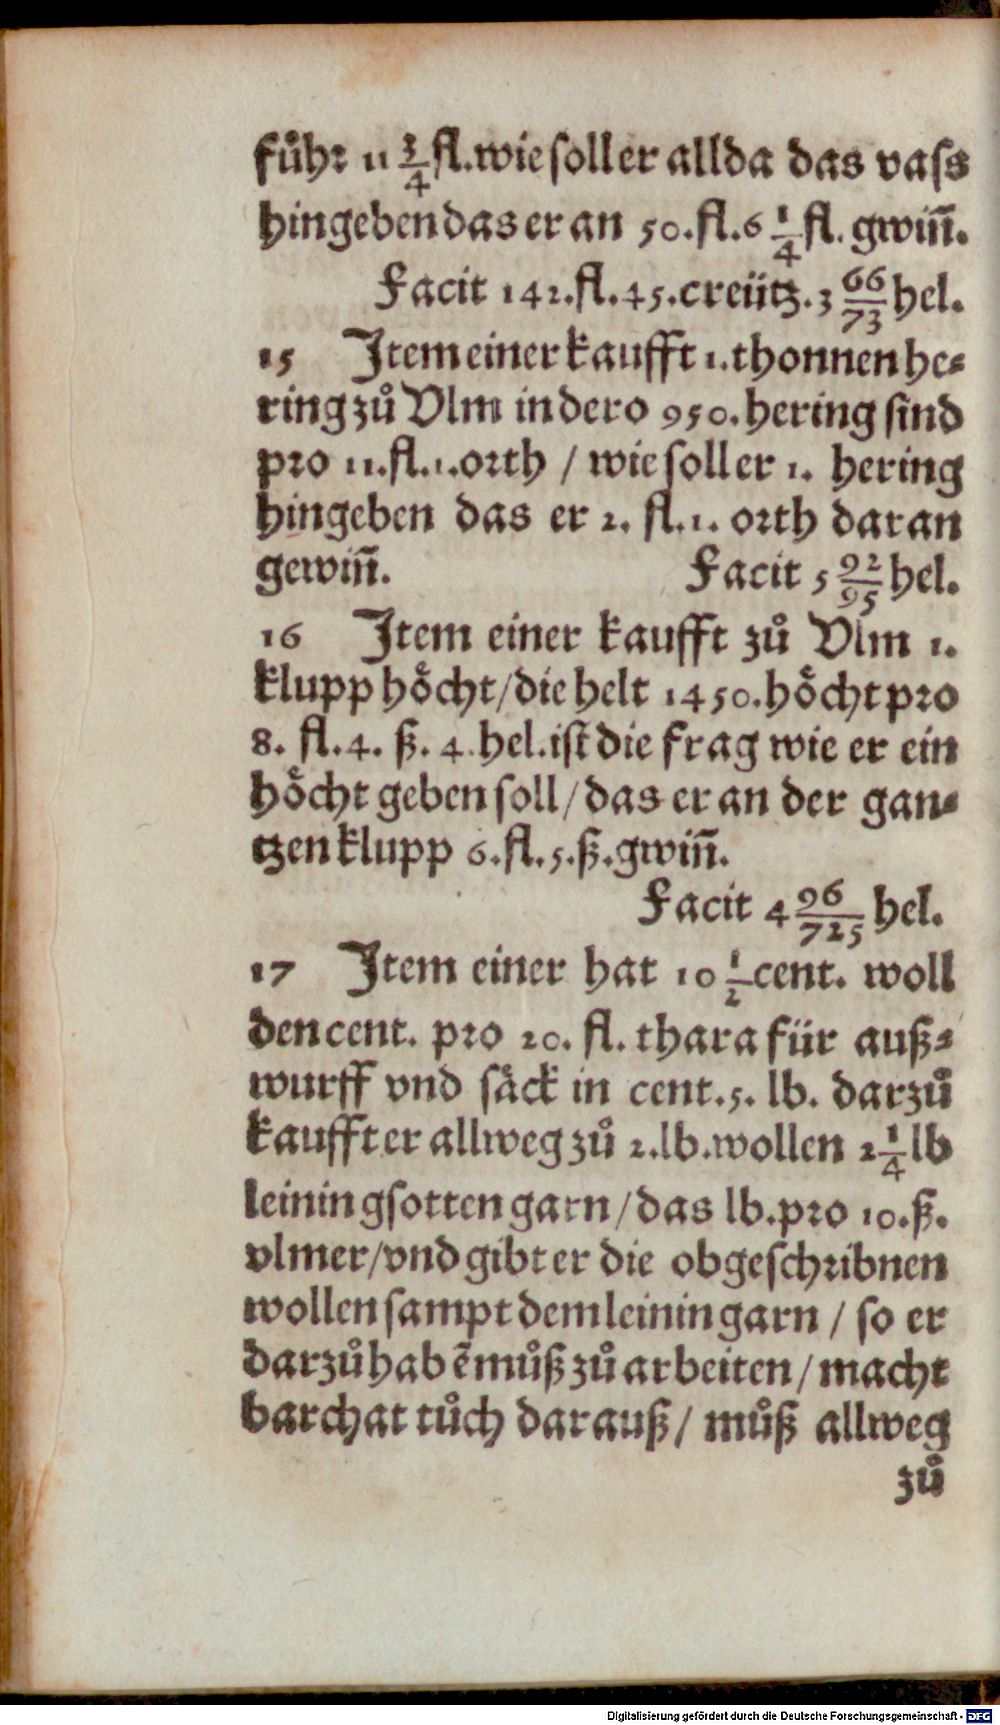 fuͤhr 11 3/4 fl. wie soll er allda das vass
hingeben das er an 50. fl. 6 1/4 fl. gwiñ.
Facit 142. fl. 45. creütz. 3 66/73 hel.
15 Item einer kaufft 1. thonnen he⸗
ring zů Vlm in dero 950. hering sind
pro 11. fl. 1. orth / wie soll er 1. hering
hingeben das er 2. fl. 1. orth daran
gewiñ. Facit 5 92/95 hel.
16 Item einer kaufft zů Vlm 1.
klupp hoͤcht / die helt 1450. hoͤcht pro
8. fl. 4. ß. 4. hel. ist die frag wie er ein
hoͤcht geben soll / das er an der gan⸗
tzen klupp 6. fl. 5. ß. gwiñ.
Facit 4 96/725 hel.
17 Item einer hat 10 1/2 cent. woll
den cent. pro 20. fl. thara für auß⸗
wurff vnd saͤck in cent. 5. lb. darzů
kaufft er allweg zů 2. lb. wollen 2 1/4 lb
leinin gsotten garn / das lb. pro 10. ß.
vlmer / vnd gibt er die obgeschribnen
wollen sampt dem leinin garn / so er
darzů habẽ můß zů arbeiten / macht
barchat tůch darauß / můß allweg
zů
Digitalisierung gefördert durch die Deutsche Forschungsgemeinschaft - DFG